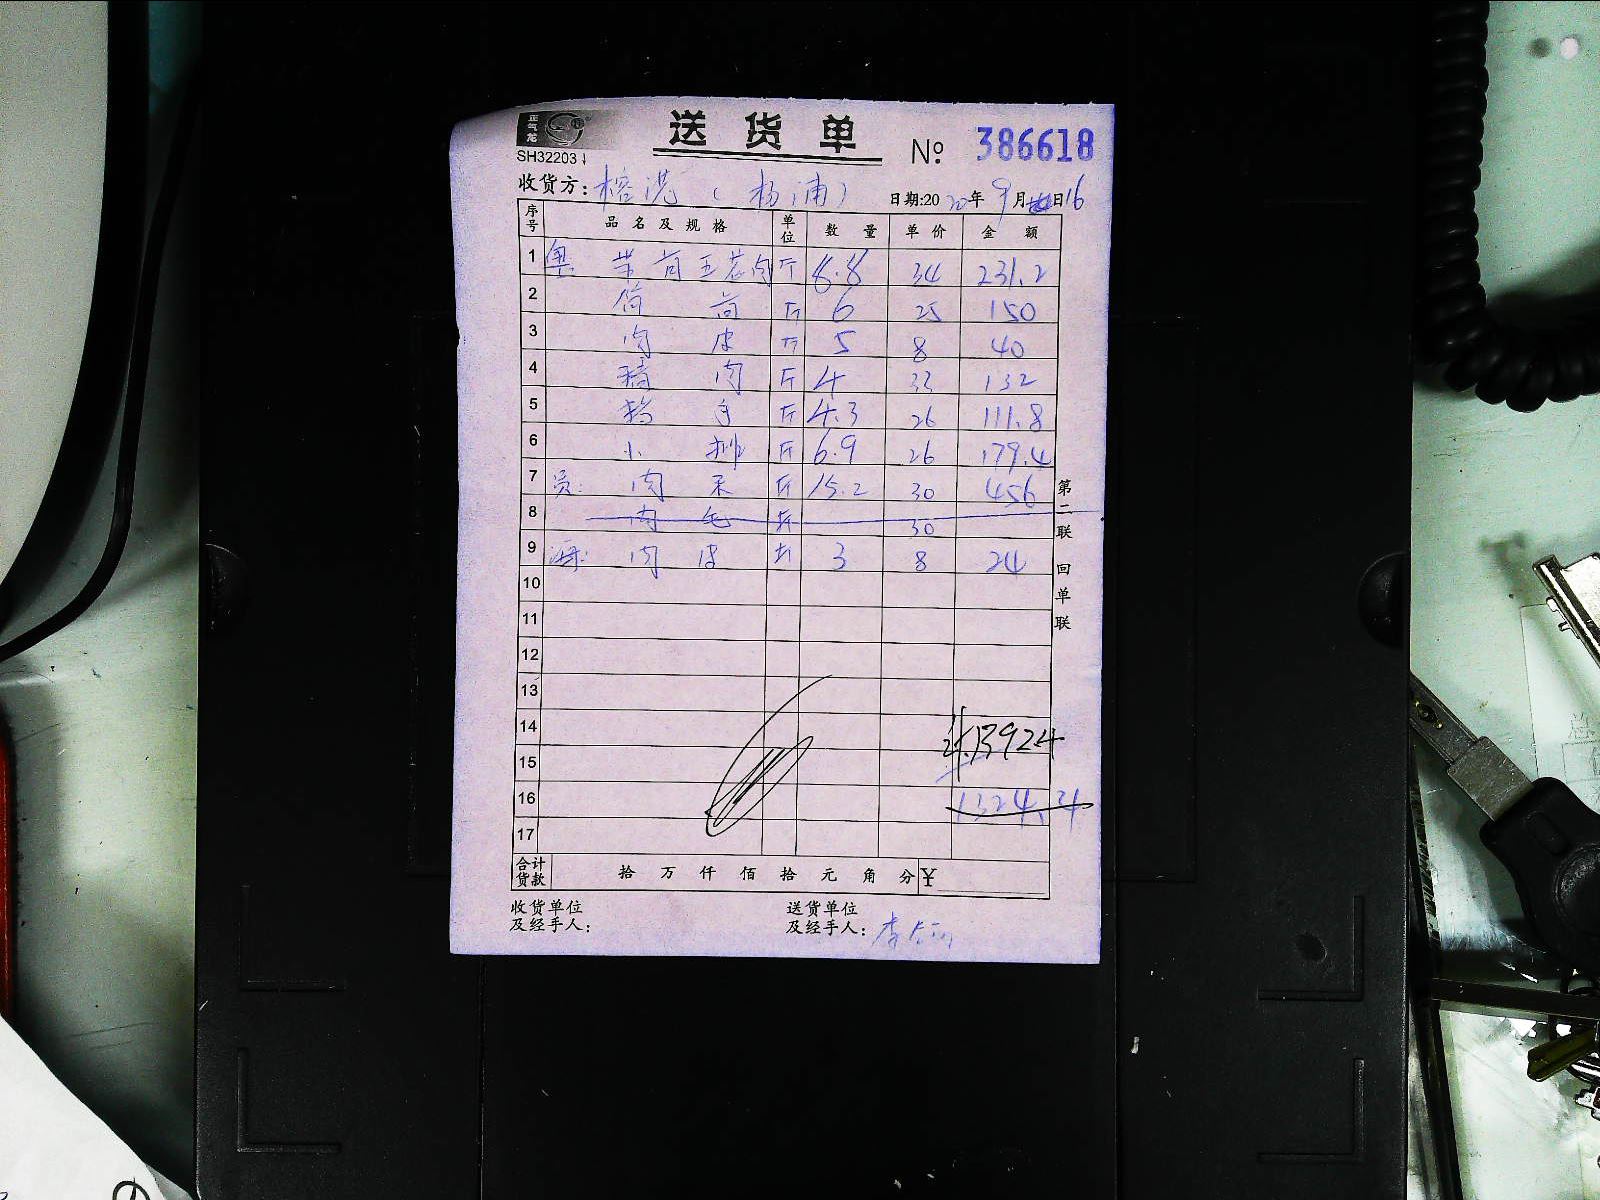 正气龙
送货单
№ 386618
SH32203
收货方: 榕港(杨浦) 日期:2020年9月16日
序号 品名及规格 单位 数量 单价 金额
1 带 五花肉 斤 6.8 34 231.2
2 斤 6 25 150
3 肉皮 斤 5 8 40
4 精肉 斤 4 33 132
5 斤 4.3 26 111.8
6 小排 斤 6.9 26 179.4
7 肉 斤 15.2 30 456
8 肉 斤 30
9 肉皮 斤 3 8 24
10
11
12
13
14
15
16
17
1324.4
合计货款 拾万仟佰拾元角分 ¥
收货单位及经手人:
送货单位及经手人: 李
第二联 回单联